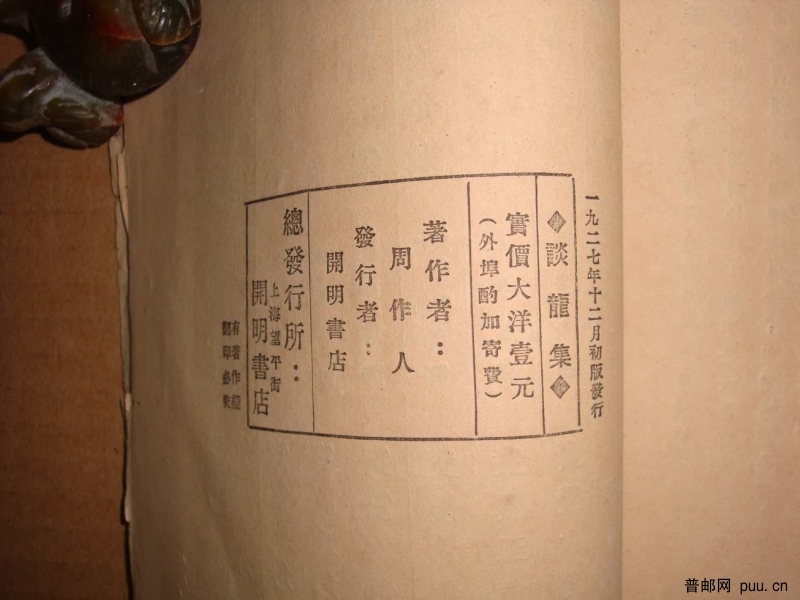 一九二七年十二月初版發行
談龍集
實價大洋壹元
(外埠酌加寄費)
著作者:
周作人
發行者:
開明書店
總發行所:
上海望平街
開明書店
有著作權
翻印必究
普邮网 puu.cn